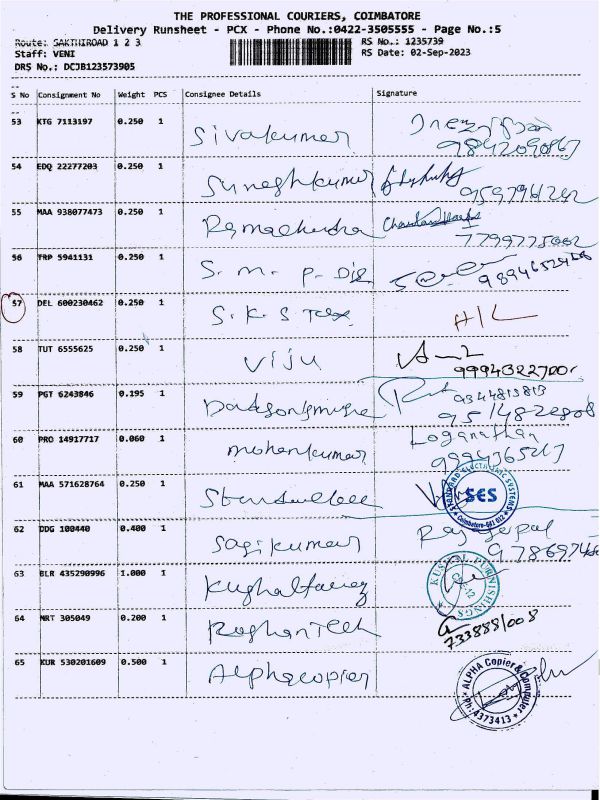 THE PROFESSIONAL COURIERS, COIMBATORE
Delivery Runsheet - PCX - Phone No.:0422-3505555 - Page No.:5
Route: SAKTHIROAD 1 2 3 RS No.: 1235739
Staff: VENI RS Date: 02-Sep-2023
DRS No.: DCJB123573905
S No Consignment No Weight PCS Consignee Details Signature
53 KTG 7113197 0.250 1 Sivakumar
9842090867
54 EDQ 22277203 0.250 1 Sureshkumar
9597961242
55 MAA 938077473 0.250 1 Ramachandra
56 TRP 5941131 0.250 1 S. M. P. Die
57 DEL 600230462 0.250 1 S. K. S Tex
58 TUT 6555625 0.250 1 Viju
59 PGT 6243846 0.195 1
9344813813
60 PRO 14917717 0.060 1 mohankumar Loganathan
61 MAA 571628764 0.250 1
STANDARD ELECTRONIC SYSTEMS
SES
Coimbatore-641 012
62 DDG 100440 0.400 1 Sagikumar Rajgopal
63 BLR 435290996 1.000 1
KUSHAL FURNISHINGS
CBE-12
64 MRT 305049 0.200 1
7338881008
65 KUR 530201609 0.500 1 Alphacopier
ALPHA Copier & Computer
Ph: 4373413